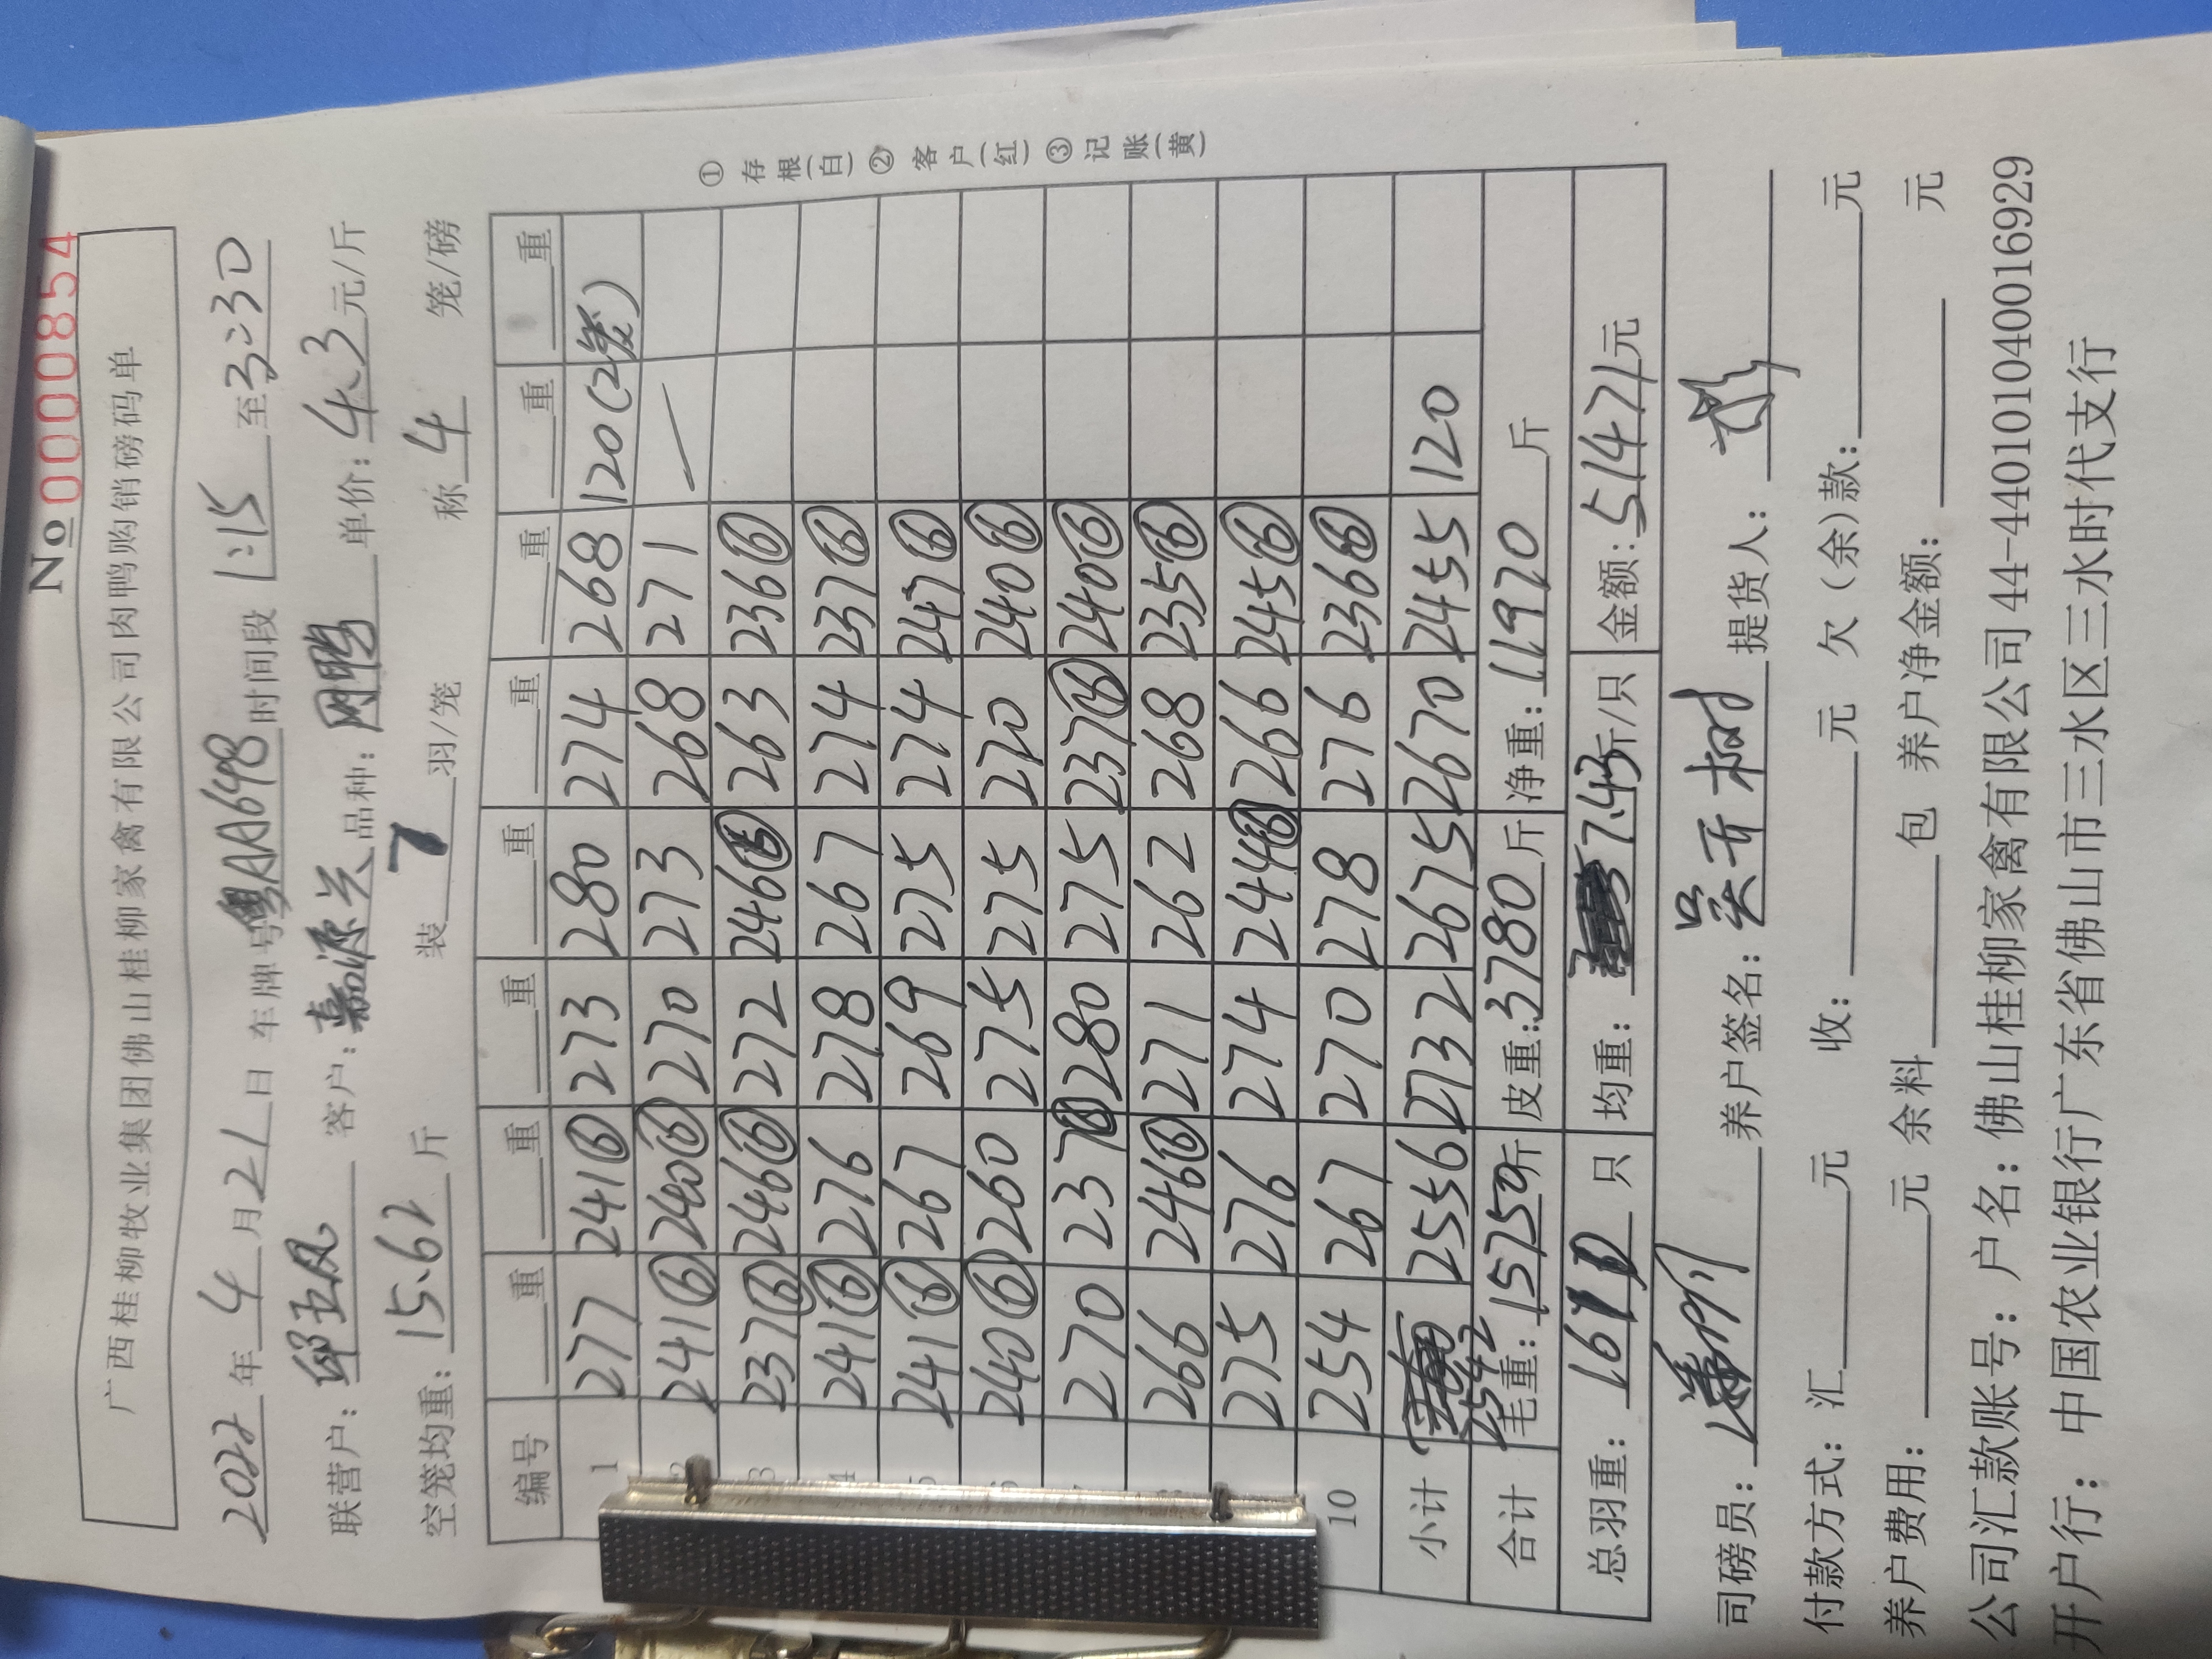 No 0000854
广西桂柳牧业集团佛山桂柳家禽有限公司肉鸭购销磅码单
2022年4月21日 车牌号粤AA6498时间段1:15至3:30
联营户: 邱五凤 客户: 嘉源兴 品种: 网鸭 单价: 4.3元/斤
空笼均重: 15.62斤 装7羽/笼 称4笼/磅
编号 重 重 重 重 重 重 重
1 277 241⑥ 273 280 274 268 120(2笼)
2 241⑥ 240⑥ 270 273 268 271
3 237⑥ 246⑥ 272 246⑥ 263 236⑥
4 241⑥ 276 278 267 274 237⑥
5 241⑥ 267 269 275 274 247⑥
240⑥ 260 275 275 270 240⑥
270 237⑥ 280 275 237⑥ 240⑥
266 246⑥ 271 262 268 235⑥
275 276 274 244⑥ 266 245⑥
10 254 267 270 278 276 236⑥
小计 2542 2556 2732 2675 2670 2455 120
合计 毛重: 15750斤 皮重: 3780斤 净重: 11970斤
总羽重: 1610只 均重: 7.43斤/只 金额: 51471元
司磅员: 养户签名: 提货人:
付款方式: 汇 元 收: 元 欠(余)款: 元
养户费用: 元 余料 包 养户净金额: 元
公司汇款账号: 户名: 佛山桂柳家禽有限公司 44-440101040016929
开户行: 中国农业银行广东省佛山市三水区三水时代支行
① 存根(白) ② 客户(红) ③ 记账(黄)